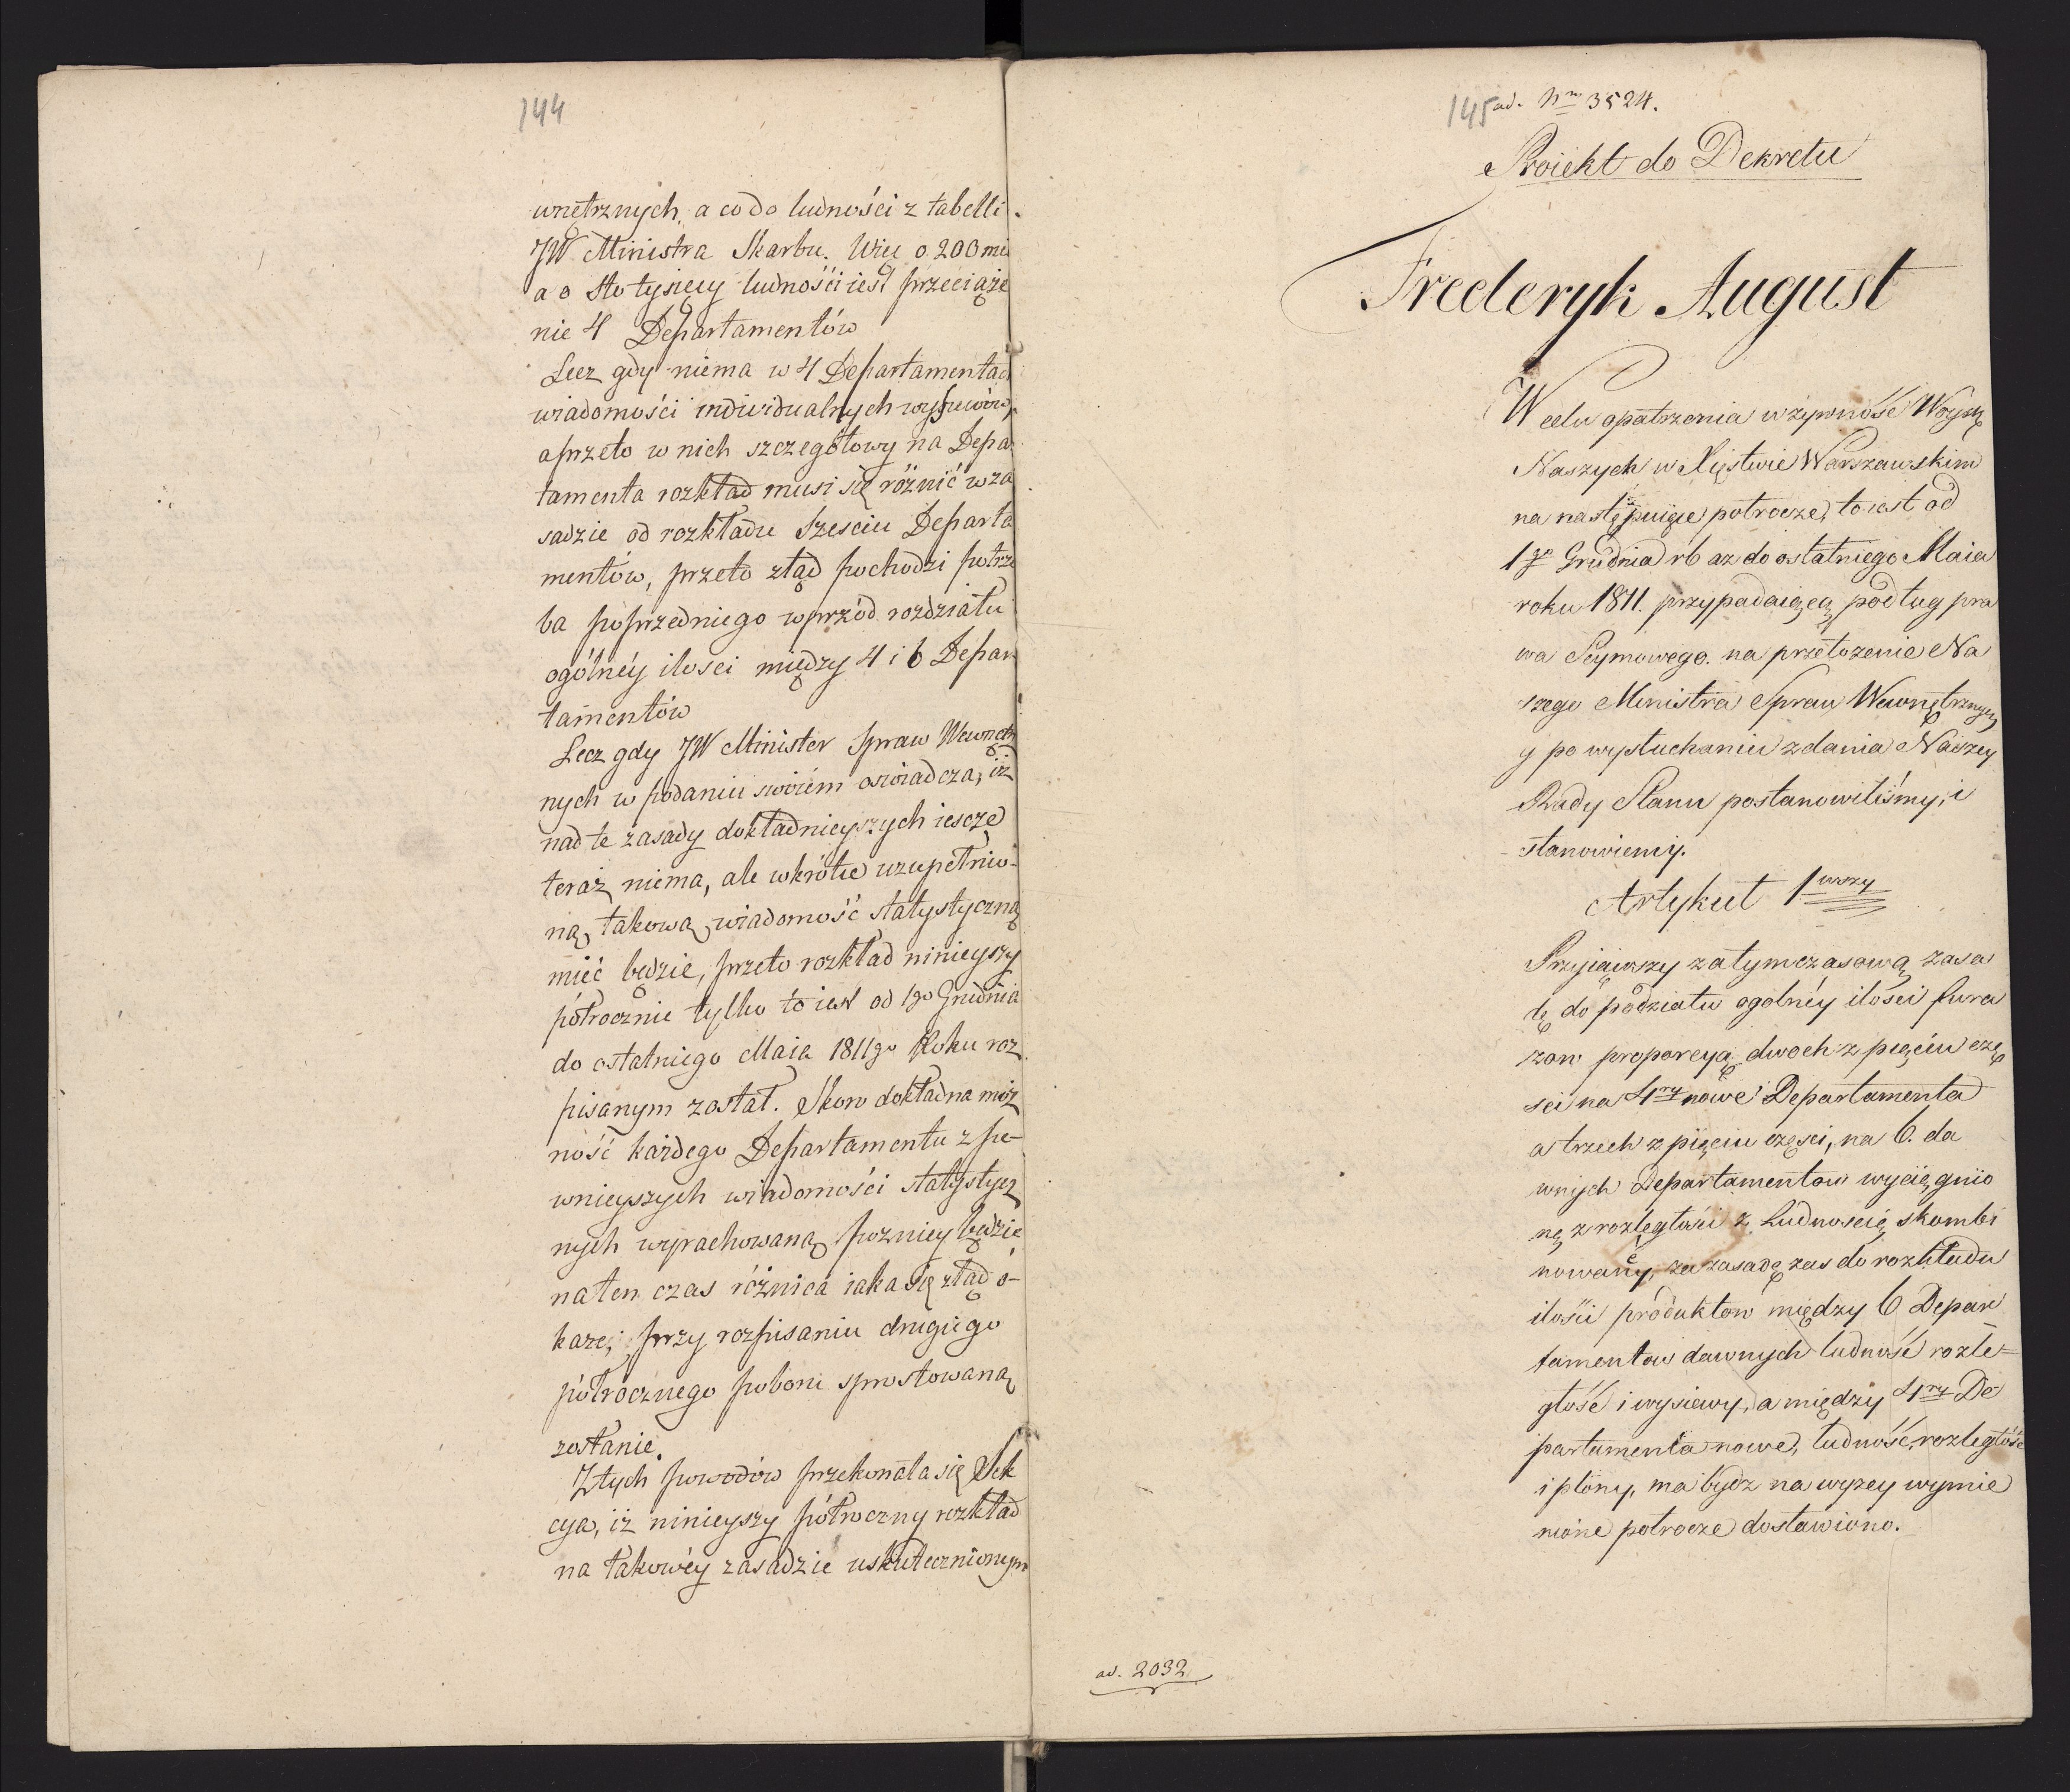 144
wnętrznych, a co do ludności z tabelli
JW Ministra Skarbu. Więc o 200 mil
a o sto tysięcy ludności iest przeciąże
nie 4 Departamentów
Lecz gdy niema w 4 Departamentach
wiadomości indiwidualnych wysiewów,
a przeto w nich szczegółowy na Depar
tamenta rozkład musi się różnić w za
sadzie od rozkładu sześciu Departa
mentów, przeto ztąd pochodzi potrze
ba poprzedniego wprzód rozdziału
ogólnéy ilości między 4 i 6 Depar
tamentów
Lecz gdy JW Minister Spraw Wewnętrz
nych w podaniu swoiém oświadcza, iż
nad te zasady dokładnieyszych iescze
teraz niema, ale wkrótce uzupełnio-
ną, takową wiadomość statystyczną
mieć będzie, przeto rozkład ninieyszy
półrocznie tylko to iest od 1go Grudnia
do ostatniego Maia 1811go Roku roz
pisanym został. Skoro dokładna moż
ność każdego Departamentu z pe-
wnieyszych wiadomości statystycz
nych wyrachowaną pozniey będzie
na ten czas różnica iaka się ztąd o-
każe, przy rozpisaniu drugiego
półrocznego poboru sprostowaną
zostanie.
Z tych powodów przekonała się Sek
cya, iż ninieyszy półroczny rozkład
na takowéy zasadzie uskutecznionym
145 ad. Nrm 3524.
Proiekt do Dekretu
Frederyk August
W celu opatrzenia w żywność Woysk
Naszych w Xięstwie Warszawskim
na następuiące potrocze, to iest od
1go Grudnia rb az do ostatniego Maia
roku 1811. przypadaiącą podług pra
wa Seymowego. na przełożenie Na
szego Ministra Spraw Wewnętrznych
y po wysłuchaniu zdania Naszey
Rady Stanu postanowiliśmy, i
stanowiemy.
Artykuł 1wszy
Przyiąwszy za tymczasową zasa
dę do podziału ogolnéy ilości fura
żow proporcyą dwoch z pięciu czę
sci na 4ry nowe Departamenta
a trzech z pięciu części, na 6. da
wnych Departamentow wyciągnio
ną z rozległości z Ludnoscią skombi
nowanéy, za zasadę zas do rozkładu
ilości produktow między 6 Depar
tamentow dawnych ludność rozle=
głość i wysiewy, a między 4ry De
partamenta nowe, ludność, rozległość
i plony, ma bydz na wyzey wymie
nione potrocze dostawiono.
ad. 2032